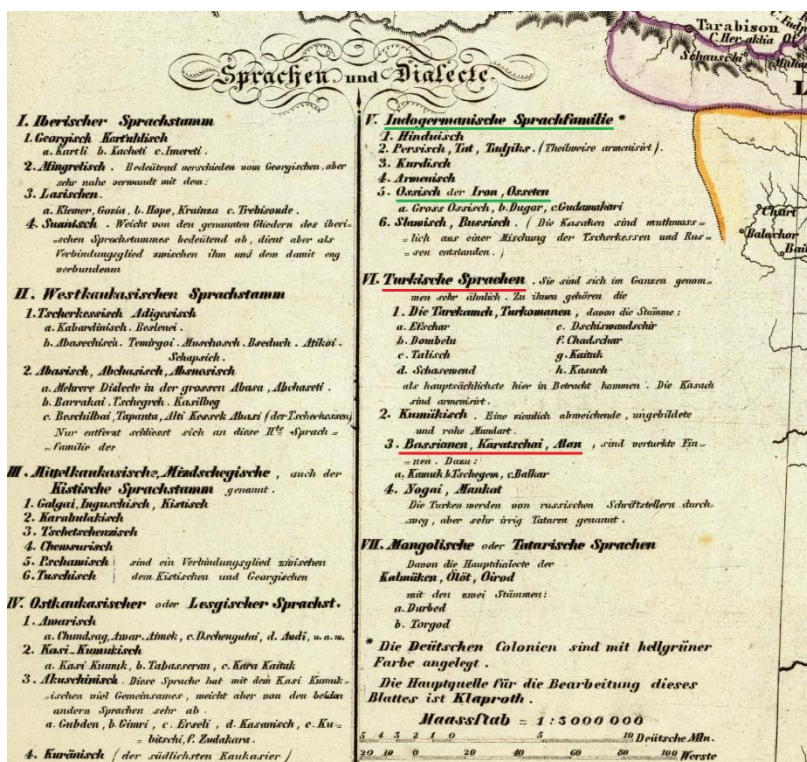 Sprachen und Dialecte.
I. Iberischer Sprachstamm
1. Georgisch Karthuhlisch
a. Kartli b. Kacheti c. Imereti.
2. Mingrelisch. Bedeutend verschieden vom Georgischen, aber
sehr nahe verwandt mit dem:
3. Lasischen.
a. Kiemer, Gonia, b. Hope, Krainza c. Trebisonde.
4. Suanisch. Weicht von den genannten Gliedern des iberi=
=schen Sprachstammes bedeutend ab, dient aber als
Verbindungsglied zwischen ihm und dem damit eng
verbundenen
II. Westkaukasischen Sprachstamm
1. Tscherkessisch Adigesisch
a. Kabardinisch. Beslenei.
b. Abasechisch. Temirgoi. Muschosch. Bseduch. Atikoi.
Schapsich.
2. Abasisch, Abchasisch, Absnesisch
a. Mehrere Dialecte in der grossen Abasa, Abchaseti.
b. Barrakai. Tschegreh. Kasilbeg
c. Beschilbai, Tapanta, Alti Kessek Abasi (der Tscherkessen)
Nur entfernt schliesst sich an diese IIte Sprach=
=familie der
III. Mittelkaukasische, Mizdschegische, auch der
Kistische Sprachstamm genannt.
1. Galgai, Inguschisch, Kistisch
2. Karabulakisch
3. Tschetschenzisch
4. Chewsurisch
5. Pschawisch sind ein Verbindungsglied zwischen
6. Tuschisch dem Kistischen und Georgischen
IV. Ostkaukasischer oder Lesgischer Sprachst.
1. Awarisch
a. Chundsag, Awar. Aimek, c. Dschengutai, d. Andi, u.a.m.
2. Kasi-Kumukisch
a. Kasi Kumuk, b. Tabasseran, c. Kara Kaitak
3. Akuschinisch. Diese Sprache hat mit dem Kasi Kumuk=
=ischen viel Gemeinsames, weicht aber von den beiden
andern Sprachen sehr ab.
a. Gubden, b. Gimri, c. Erseli, d. Kasanisch, e. Ku=
=bitschi, f. Zudakara.
4. Kuränisch (der südlichsten Kaukasier)
V. Indogermanische Sprachfamilie *
1. Hinduisch
2. Persisch, Tat, Tadjiks. (Theilweise armenisirt).
3. Kurdisch
4. Armenisch
5. Ossisch der Iron, Osseten
a. Gross Ossisch, b. Dugor, c. Gudamakari
6. Slawisch, Russisch. (Die Kasaken sind muthmass=
=lich aus einer Mischung der Tscherkessen und Rus=
=sen entstanden.)
VI. Turkische Sprachen. Sie sind sich im Ganzen genom=
men sehr ähnlich. Zu ihnen gehören die
1. Die Tarekamch, Turkomanen, davon die Stämme:
a. Efschar e. Dschiswandschir
b. Dombelu f. Chadschar
c. Talisch g. Kaituk
d. Schasewend h. Kasach
als hauptsächlichste hier in Betracht kommen. Die Kasach
sind armenisirt.
2. Kumükisch. Eine ziemlich abweichende, ungebildete
und rohe Mundart.
3. Bassianen, Karatschai, Alan, sind verturkte Fin=
=nen. Dazu:
a. Kamuk b. Tschegem, c. Balkar
4. Nogai, Mankat
Die Turken werden von russischen Schriftstellern durch=
=weg, aber sehr irrig Tataren genannt.
VII. Mongolische oder Tatarische Sprachen
Davon die Hauptdialecte der
Kalmüken, Ölöt, Oirod
mit den zwei Stämmen:
a. Durbed
b. Torgod
* Die Deütschen Colonien sind mit hellgrüner
Farbe angelegt.
Die Hauptquelle für die Bearbeitung dieses
Blattes ist Klaproth.
Maasstab = 1:3000000
5 4 3 2 1 0 5 10 Deütsche Mln.
20 10 0 20 40 60 80 100 Werste
Tarabison
C. Heraklia
Schauschi
L
Chart
Balachor